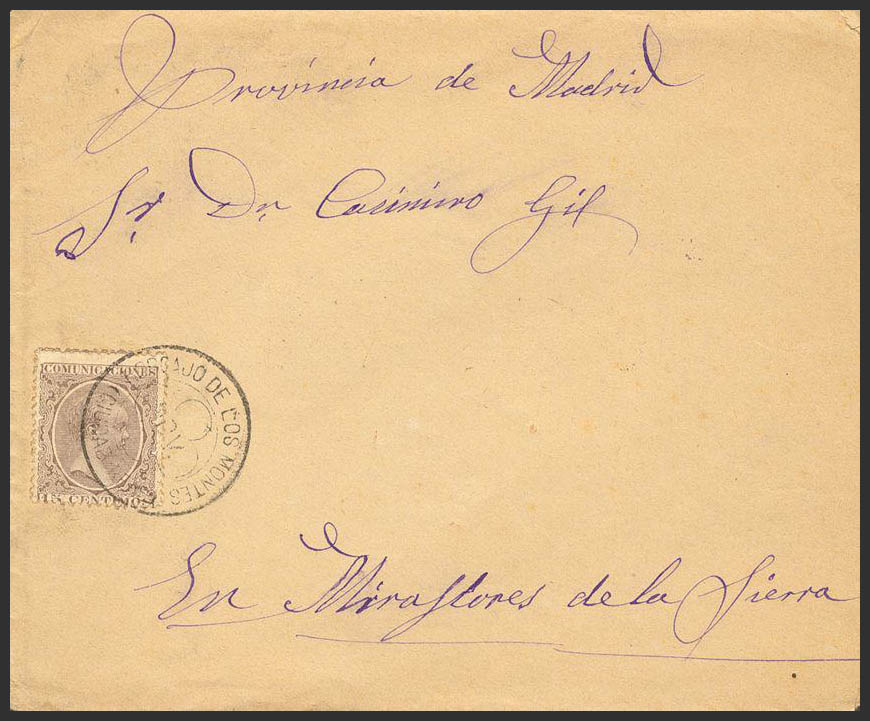 Provincia de Madrid
Sr. Dn. Casimiro Gil
COMUNICACIONES
15 CENTIMOS
DE LOS MONTES
En Miraflores de la Sierra